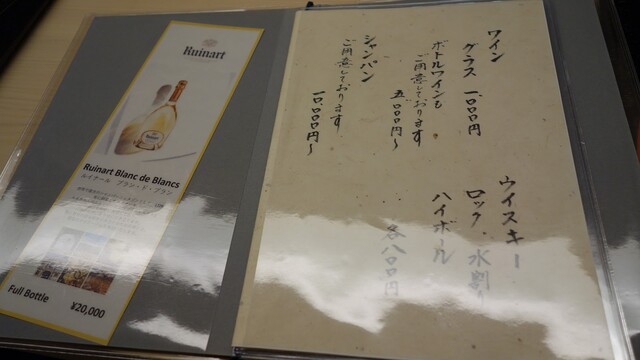 Ruinart
Ruinart Blanc de Blancs
ルイナール ブラン・ド・ブラン
Full Bottle ¥20,000
ワイン
グラス 一、〇〇〇円
ボトルワインも
ご用意しております
五、〇〇〇円〜
シャンパン
ご用意しております
一〇、〇〇〇円〜
ウイスキー
ロック・水割り
ハイボール
各八〇〇円